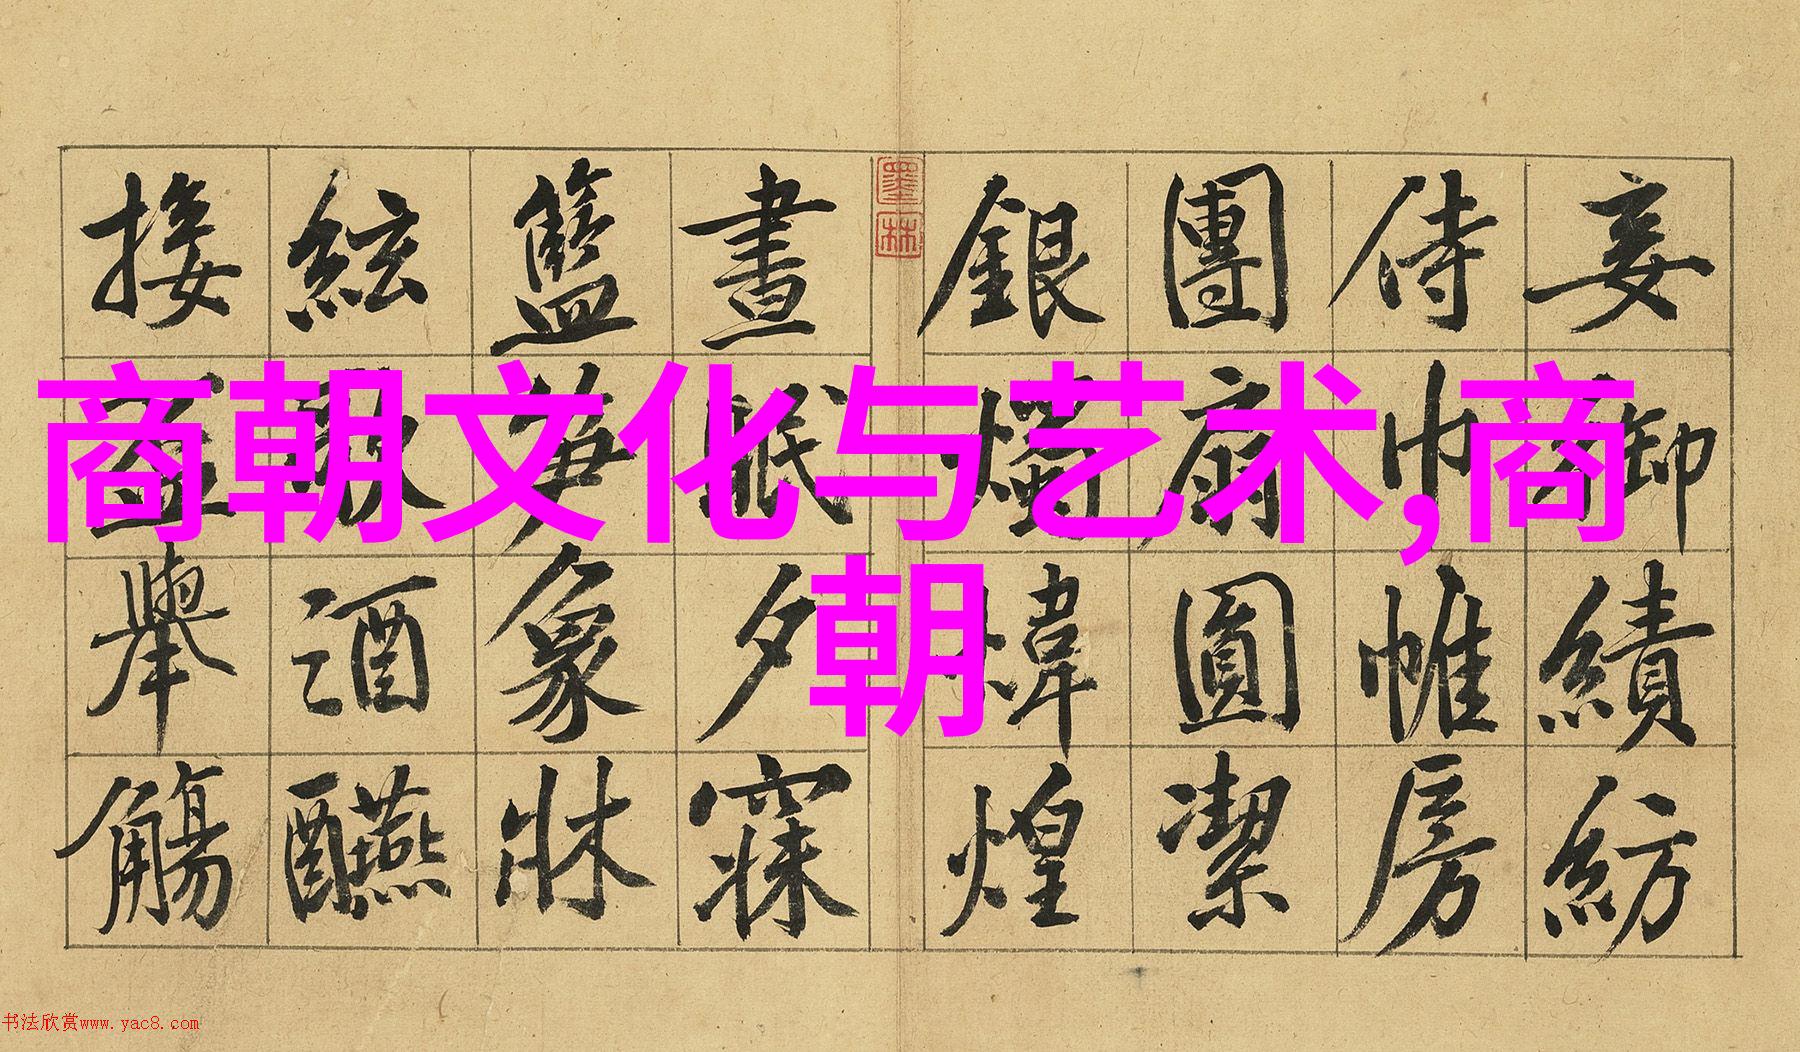 商朝文化与艺术,商
朝
妾御績紡
侍巾帷房
團扇圓潔
銀煒煌
墨林
晝眠夕寐
籃笋象牀
絃酒醼
接舉觴
书法欣赏www.yac8.com